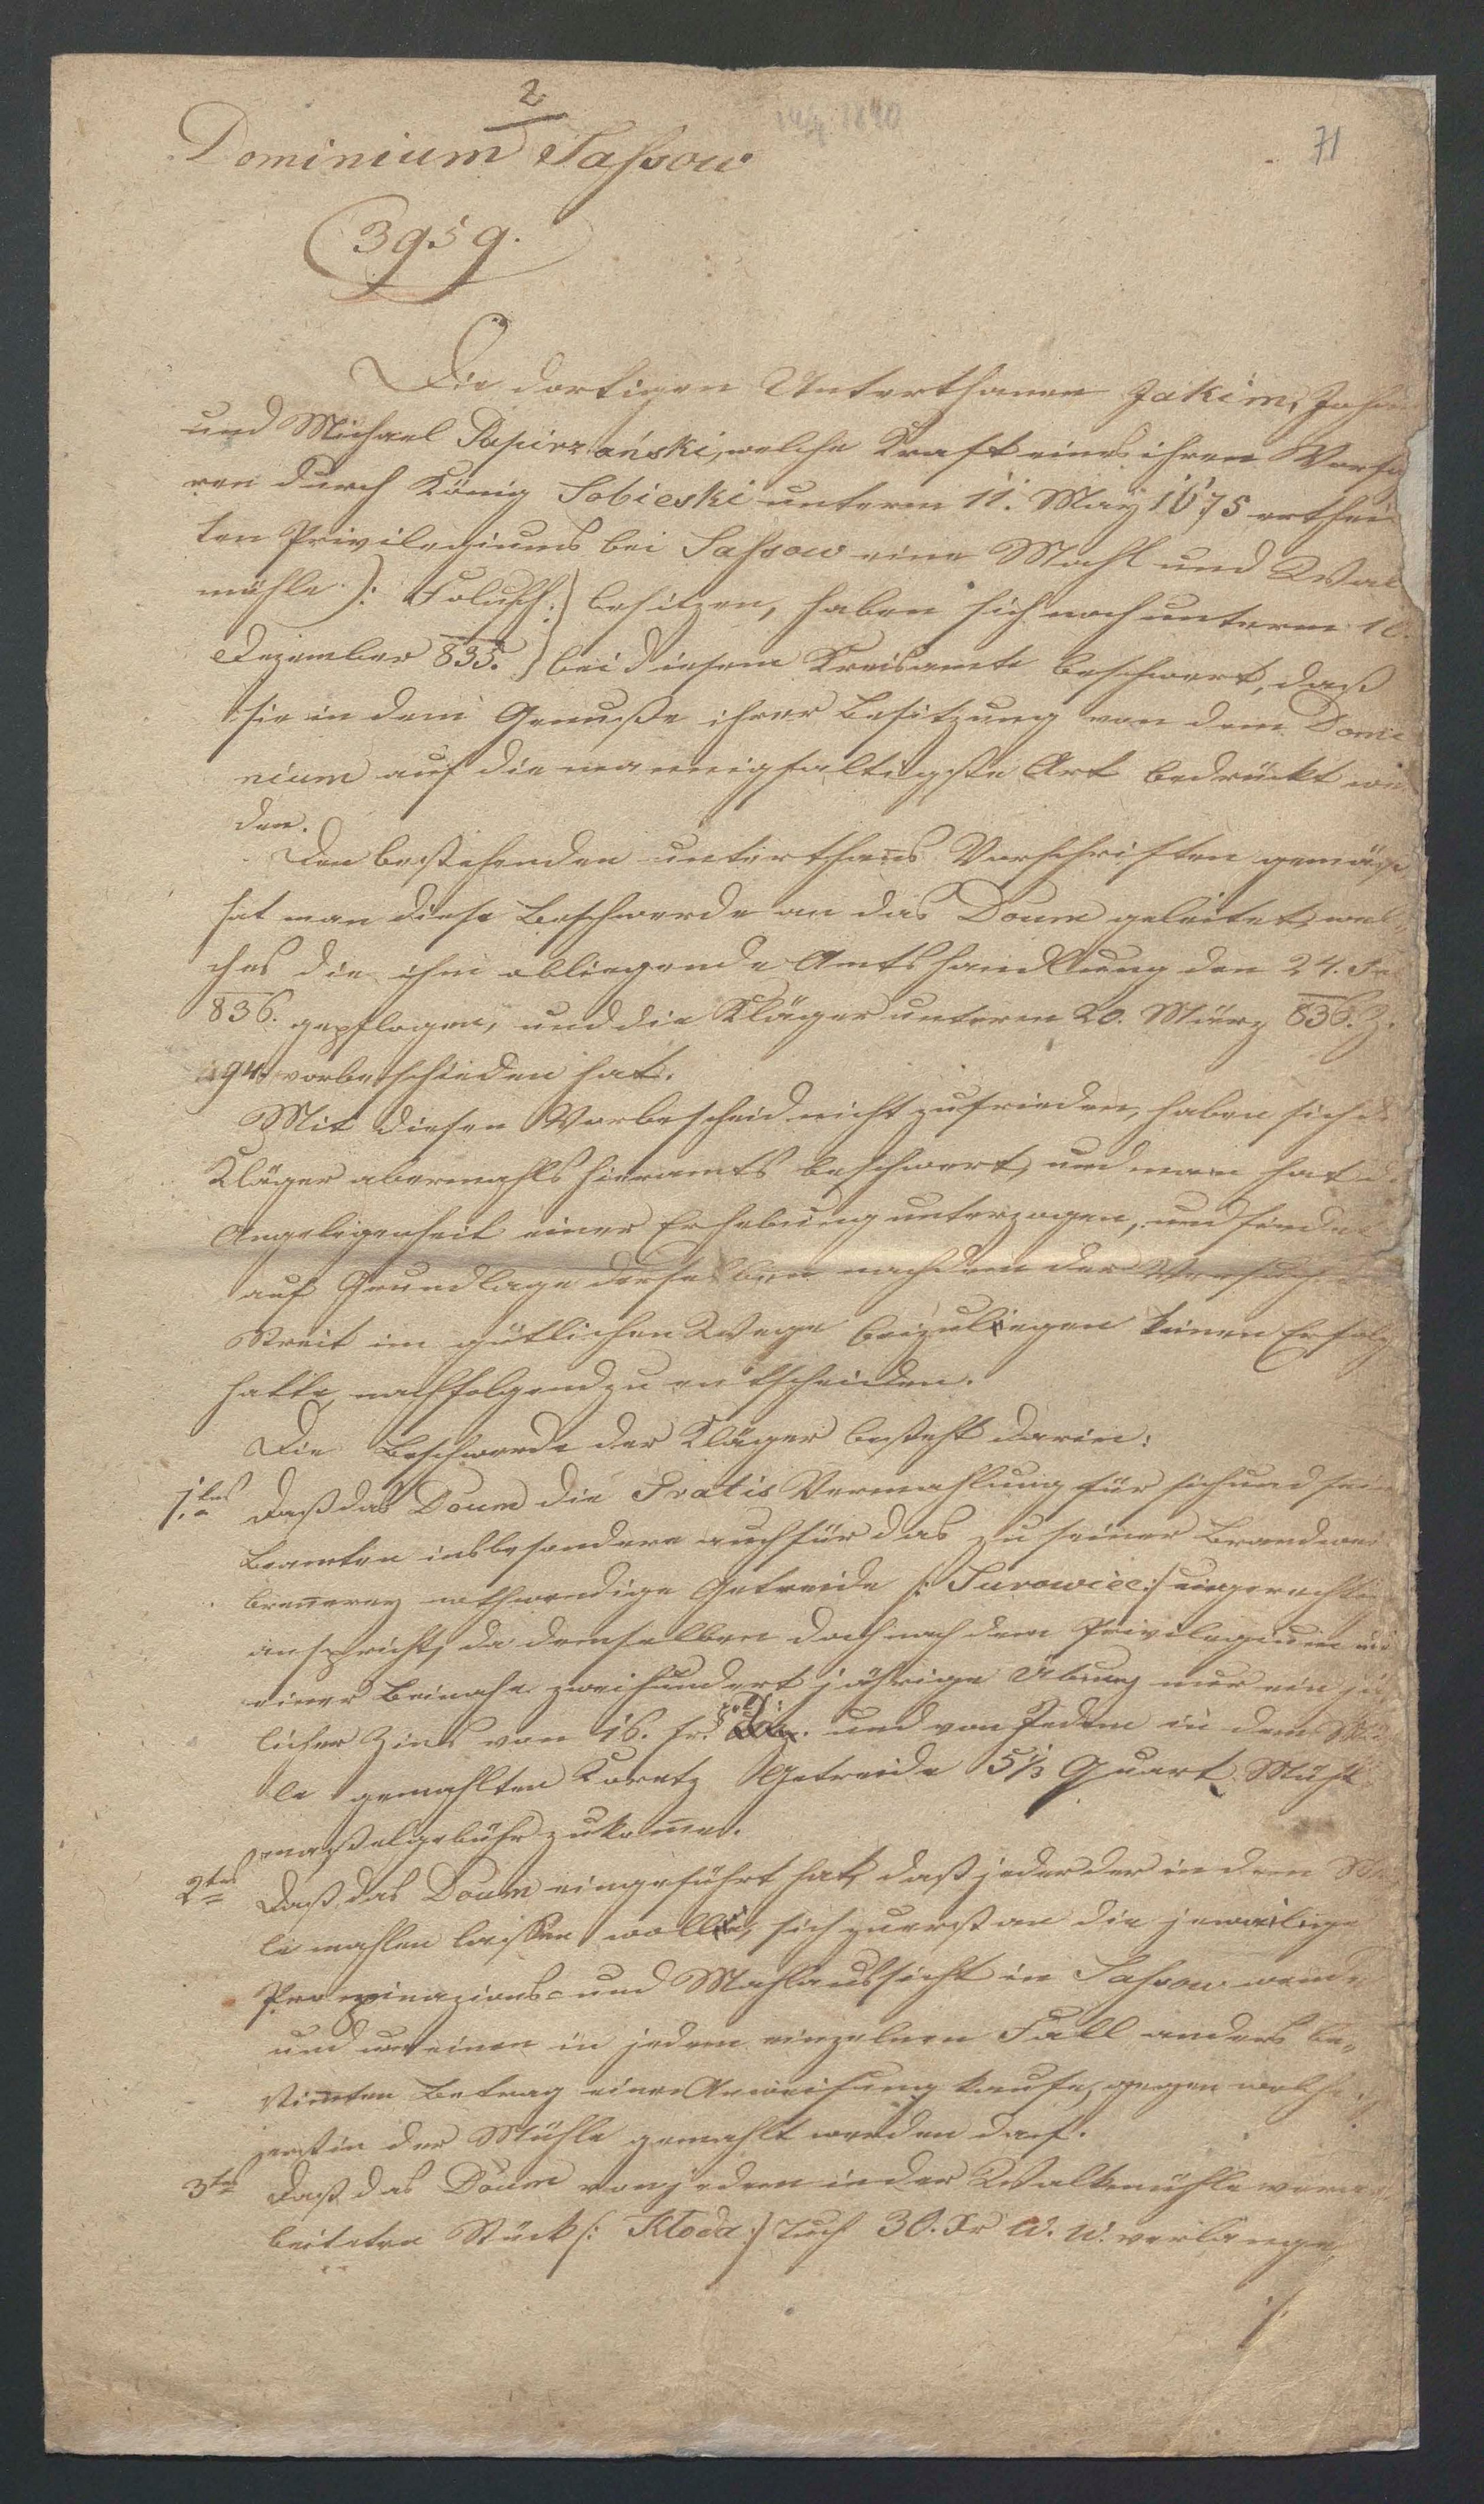 2
Dominium Saßow
14/4 1840
71
3959.
Die dortigen Unterthanen Jakim, Johan
und Michael Papirzański, welche Kraft eines ihren Vorfa
ren durch König Sobieski unterm 11. May 1675 erthei
ten Privilegiums bei Saßow eine Mahl und Walk
mühle /: Folusch :/ besitzen, haben sich noch unterm 10.
Dezember 835. bei diesem Kreisamte beschwert, daß
sie in dem Genuße ihrer Besitzung von dem Domi
nium auf die mannigfaltigste Art bedrückt wer
den.
Den bestehenden unterthans Vorschriften gemäß
hat man diese Beschwerde an das Doum geleitet, wel
ches die ihm obliegende Amtshandlung den 24.
836. gepflogen, und die Kläger unterm 20. März 836. Z.
94. vorbeschieden hat.
Mit diesen Vorbescheid nicht zufrieden, haben sich d
Kläger abermahls hieramts beschwert, und man hat d
Angelegenheit einer Erhebung unterzogen, und findet
auf Grundlage derselben nachdem der Versuch
Streit im gütlichen Wege beizulegen keinen Erfolg
hatte, nachfolgend zu entscheiden.
Die Beschwerde der Kläger besteht darin:
1.tens Daß das Doum die Gratis Vermahlung für sich und sein
Beamten insbesondere auch für das zu seiner Brandwei
brenerey nothwendige Getreide /: Surowiec :/ ungerechte
anspricht, da demselben doch nach dem Privilegium und
einer beinahe zweihundert jährige Übung nur ein jä
licher Zins von 16. fr. pol: und von Jedem in dem Mü
le gemahlten Koretz Getreide 5 1/3 Quart Mühl
maßelgebühr zukomme.
2tens Daß das Doum eingeführt hat, daß jeder der in dem Mü
le mahlen lassen wolle, sich zuerst an die jeweilige
Propinazions- und Mahlaufsicht in Saßow wende
und um einen in jedem einzelnen Fall anders be,,
stimten Betrag eine Anweisung kaufe, gegen welche
erst in der Mühle gemahlt werden darf.
3tens Daß das Doum von jedem in der Walkmühle verar
beiteten Stück /: Kłoda :/ Tuch 30. Xr W. W. verlange,
./.